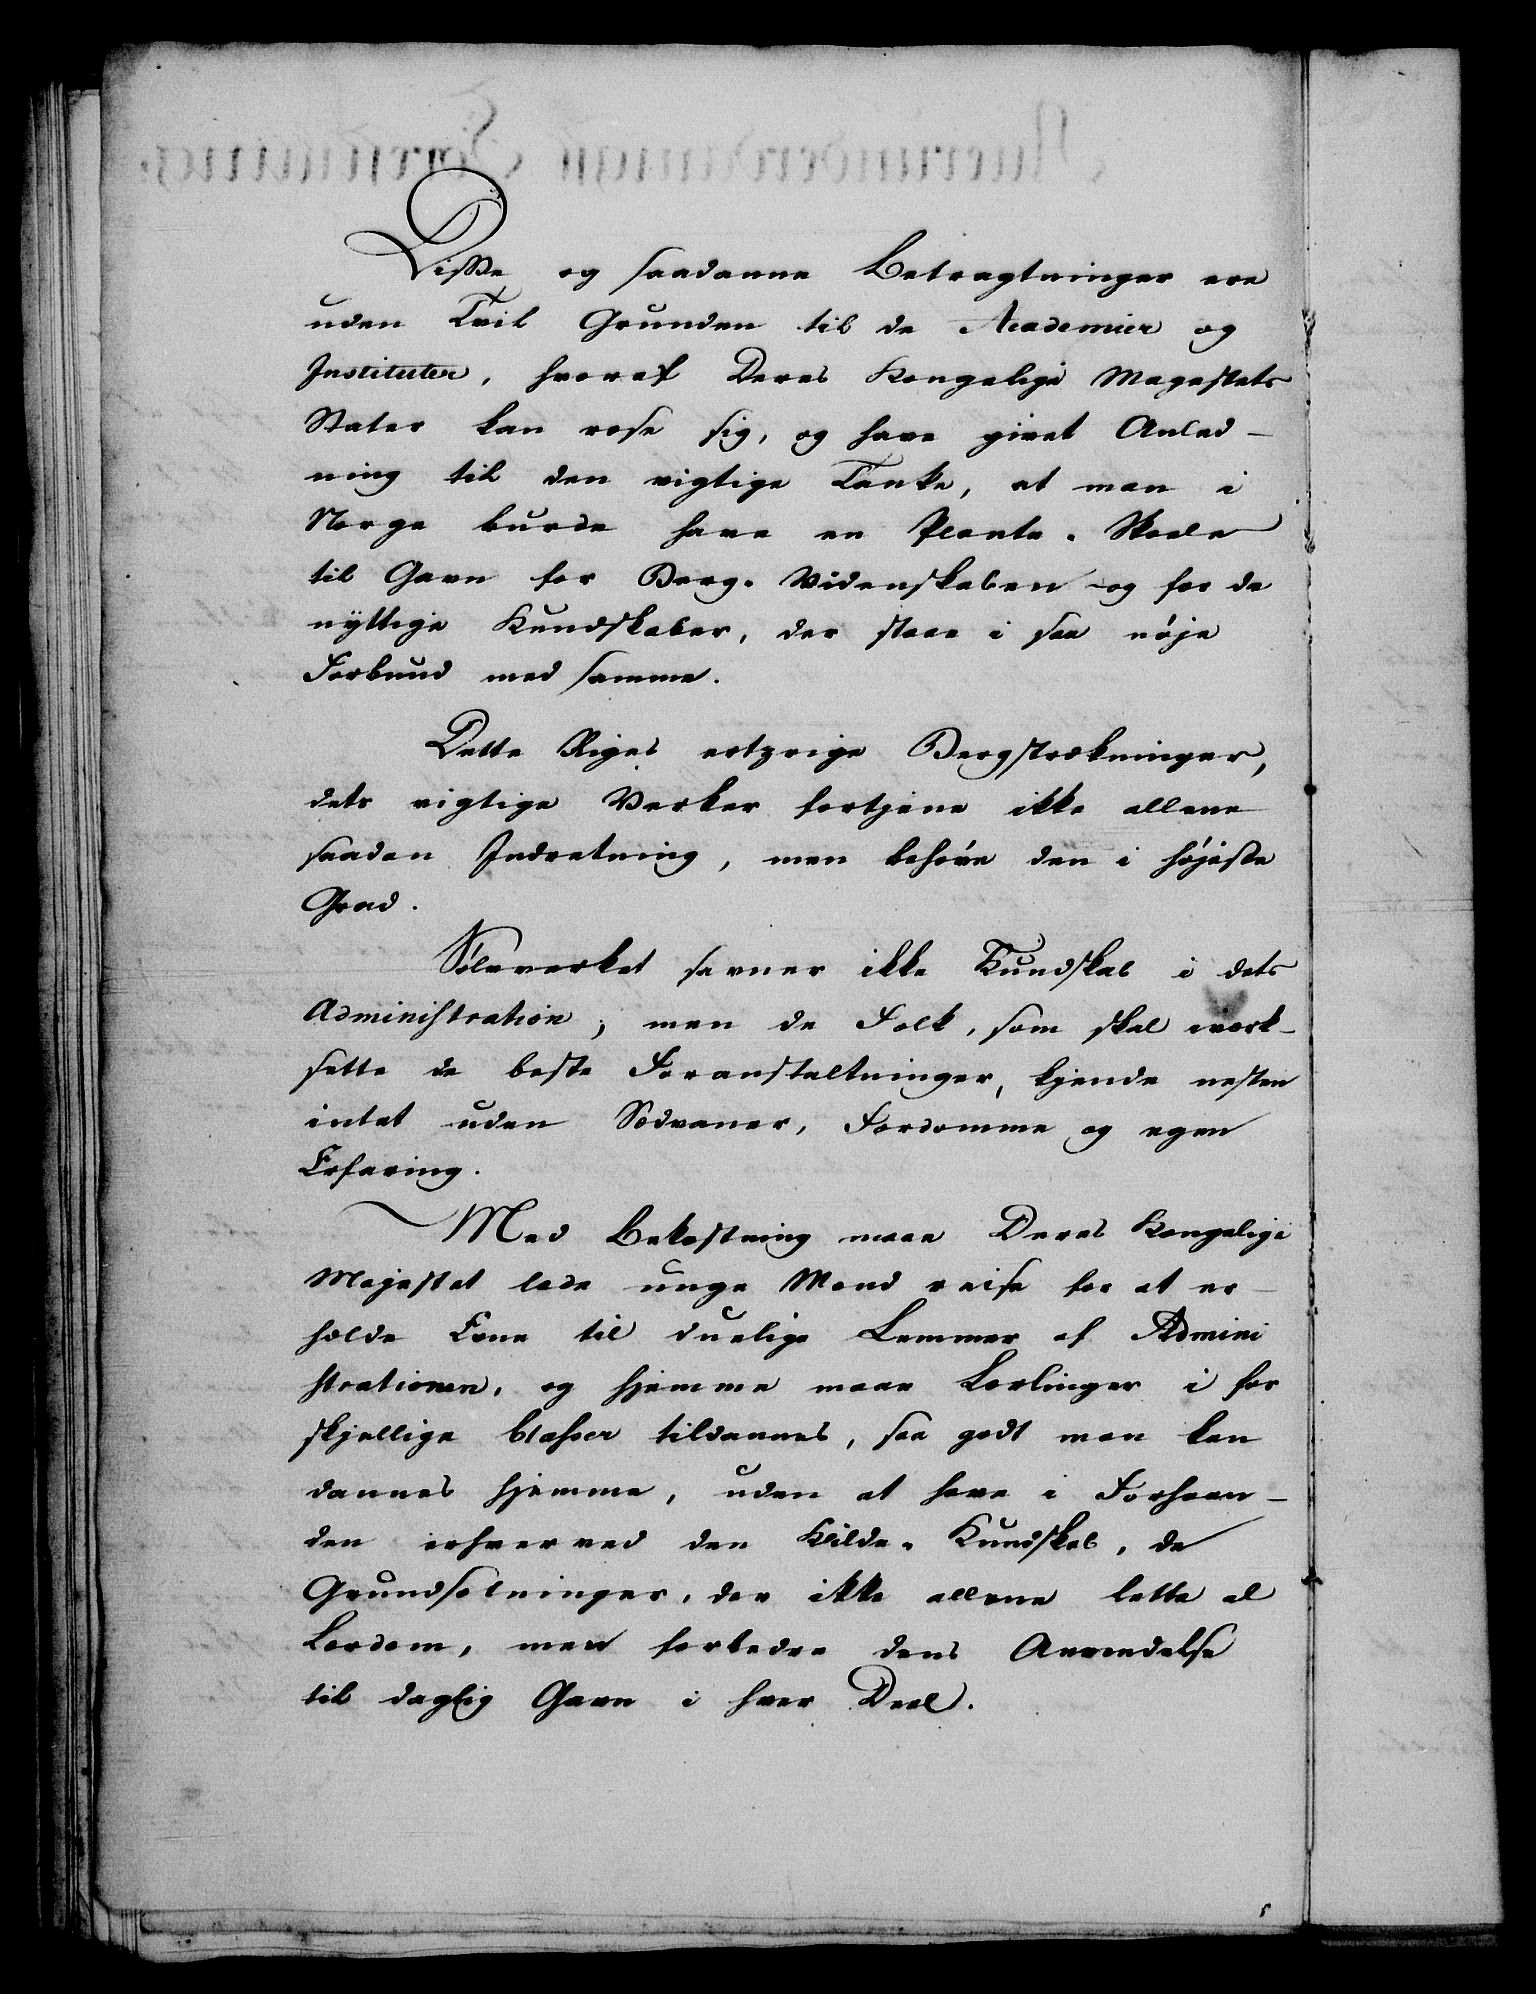 Disse og saadanne Betragtninger ere
uden Tvil Grunden til de Academier og
Instituter, hvoraf Deres Kongelige Magestets
Stater kan rose sig, og have givet Anled-
ning til den vigtige Tanke, at man i
Norge burde have en Plante-Skole
til Gavn for Berg-Videnskaben og for de
nyttige Kundskaber, der staae i saa nøje
Forbund med samme.
Dette Riges ertzrige Bergstrækninger,
dets vigtige Verker fortjene ikke allene
saadan Indretning, men behøve den i højeste
Grad.
Sølvverket savner ikke Kundskab i dets
Administration, men de Folk, som skal iverk-
sette de beste Foranstaltninger, kjende nesten
intet uden Sædvaner, Fordomme og egen
Erfaring.
Med Bekostning maae Deres Kongelige
Majestet lade unge Mænd reise for at er-
holde Evne til duelige Lemmer af Admini
strationen, og hjemme maae Lærlinger i for
skjellige Classer tildannes, saa godt man kan
dannes hjemme, uden at have i Forhaan-
den erhverved den Kilde-Kundskab, de
Grundsetninger, der ikke allene lette al
Lærdom, men forbedre dens Anvendelse
til daglig Gavn i hver Deel.